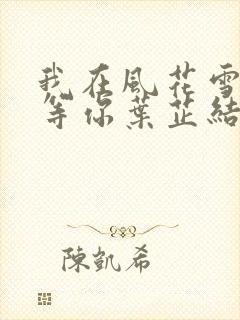 我在風花雪
等你葉芷結
陳凱希